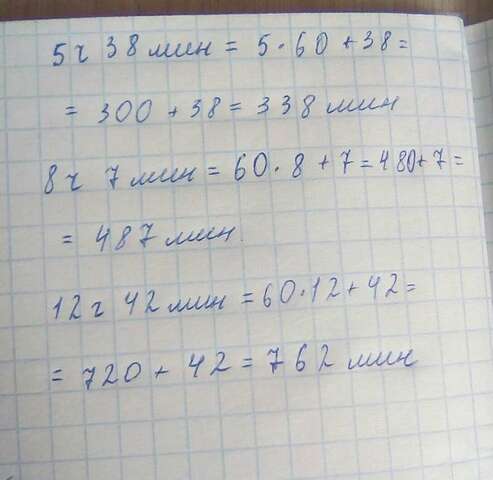 5 ч 38 мин = 5·60 + 38 =
= 300 + 38 = 338 мин
8 ч 7 мин = 60·8 + 7 = 480 + 7 =
= 487 мин.
12 ч 42 мин = 60·12 + 42 =
= 720 + 42 = 762 мин